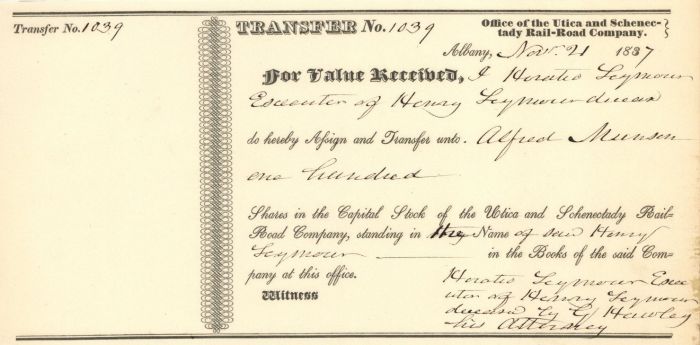 Transfer No. 1039
TRANSFER No. 1039
Office of the Utica and Schenec-
tady Rail-Road Company.
Albany, Nov. 21 1837
For Value Received, I Horatio Seymour
Executor of Henry Seymour
do hereby Assign and Transfer unto. Alfred Munson
one hundred
Shares in the Capital Stock of the Utica and Schenectady Rail-
Road Company, standing in the Name of said Henry
Seymour in the Books of the said Com-
pany at this office.
Witness
Horatio Seymour Exec
utor of Henry Seymour
deceased by G Hawley
his Attorney